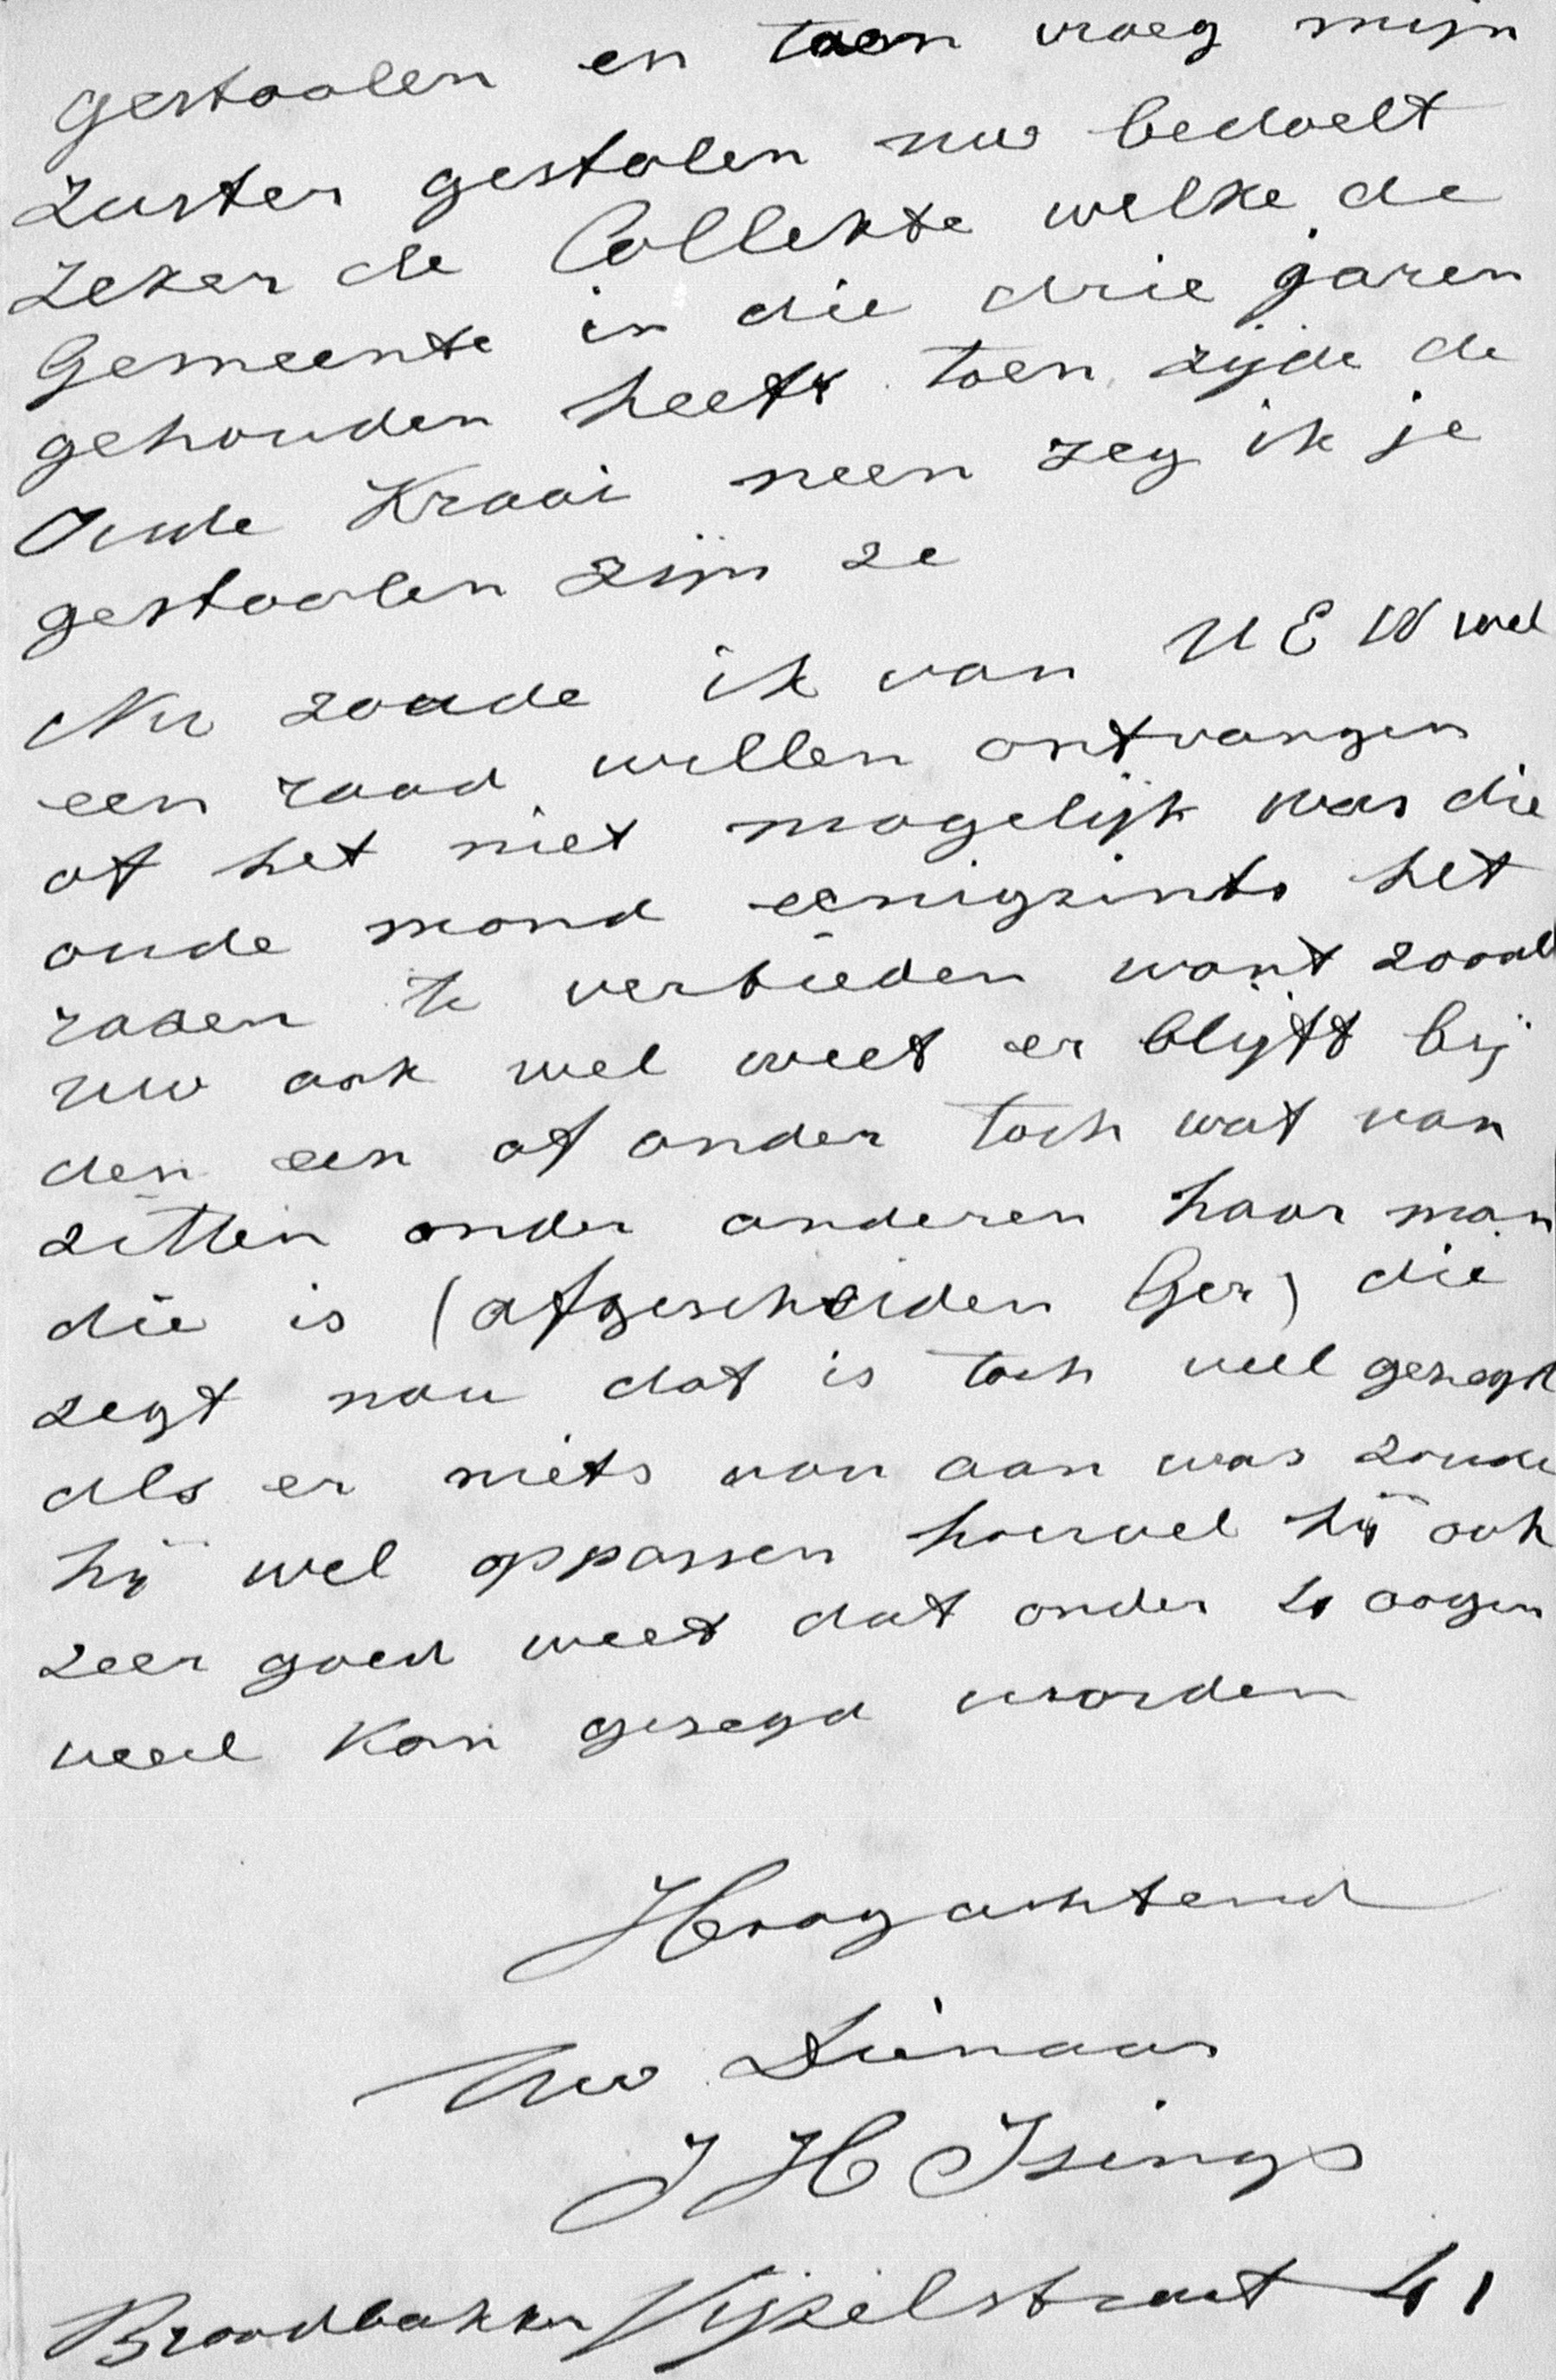 gestoolen en toen vroeg mijn
zuster gestolen nu bedoelt
zeker de Collekte welke de
Gemeente in die drie jaren
gehouden heeft toen zijde de
Oude Kraai neen zeg ik je
gestoolen zijn ze
Nu zoude ik van U E W wel
een raad willen ontvangen
of het niet mogelijk was die
oude mond eenigzints het
razen te verbieden want zooals
uw ook wel weet er blijft bij
den een of ander toch wat van
zitten onder anderen haar man
die is (afgescheiden Ger) die
zegt nou dat is toch veel gezegd
als er niets van aan was zoude
hij wel oppassen hoewel hij ook
zeer goed weet dat onder 4 oogen
veel kan gezegd worden
Hoogachtend
Uw Dienaar
J H Isings
Broodbakker Vijzelstraat 41